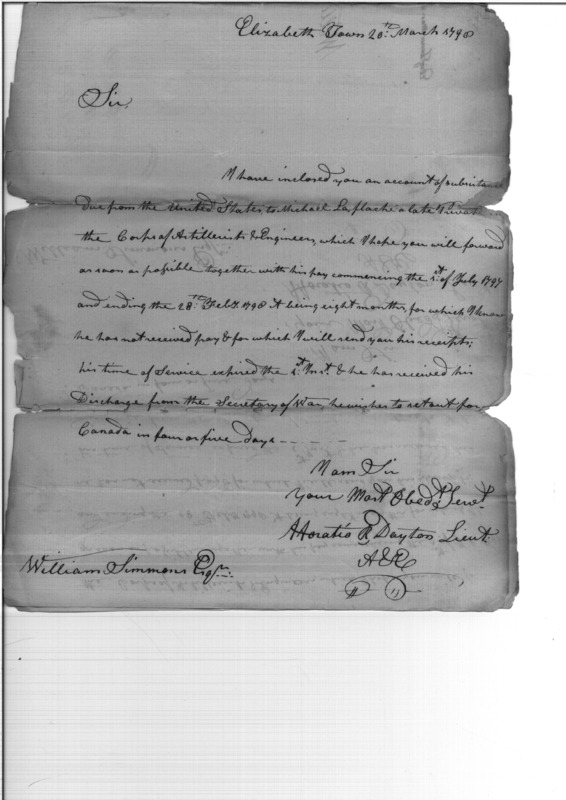 Elizabeth Town 20th March 1798
Sir,
I have inclosed you an account of subsistance
Due from the United States to Michael Laflache a late Privat
the Corps of Artillerists & Engineers, which I hope you will forward
as soon as possible together with his pay commencing the 1st of July 1797
and ending the 28th Feby 1798 it being eight months, for which I know
he has not received pay & for which I will send you his receipts;
his time of Service expired the 1st Inst. & he has received his
Discharge from the Secretary of War, he wishes to set out for
Canada in four or five days - - - -
I am Sir
Your Most Obedt Servt.
Horatio R Dayton Lieut.
A & E
William Simmons Esqr.